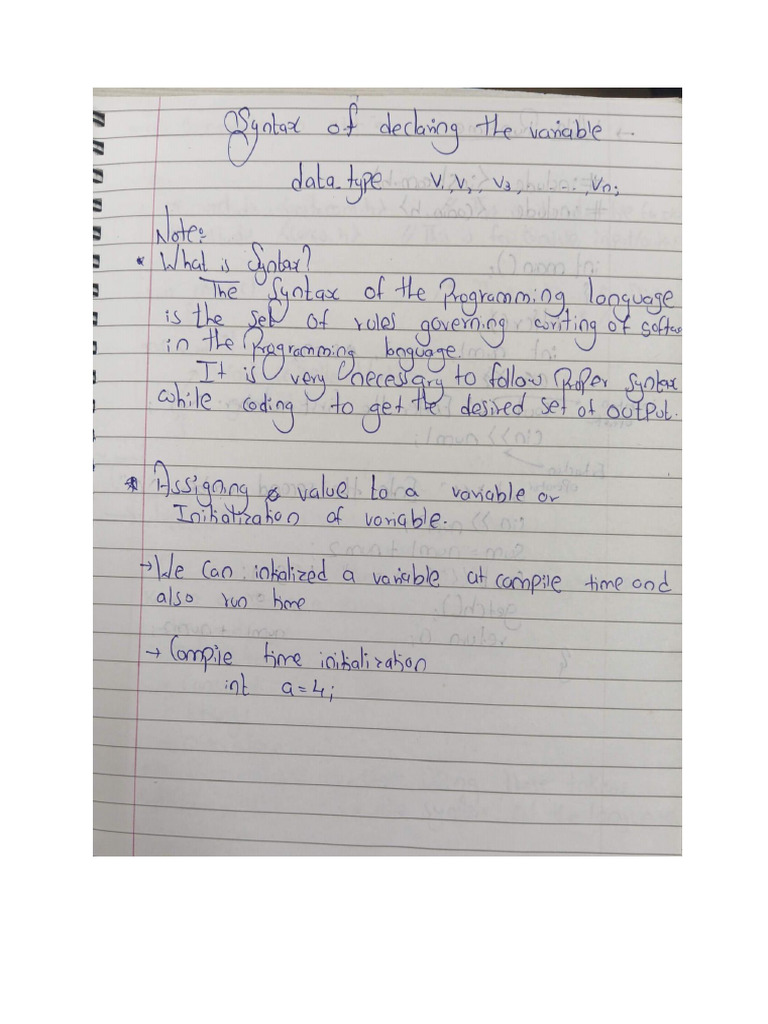 Syntax of declaring the variable.
data-type V1, V2, V3, ..., Vn;
Note:
* What is Syntax?
The Syntax of the Programming language
is the set of rules governing writing of softwa
in the Programming language.
It is very necessary to follow Proper Syntax
while coding to get the desired set of output.
* Assigning value to a variable or
Initialization of variable.
→ We can intialized a variable at compile time and
also run time
→ Compile time initialization
int a=4;